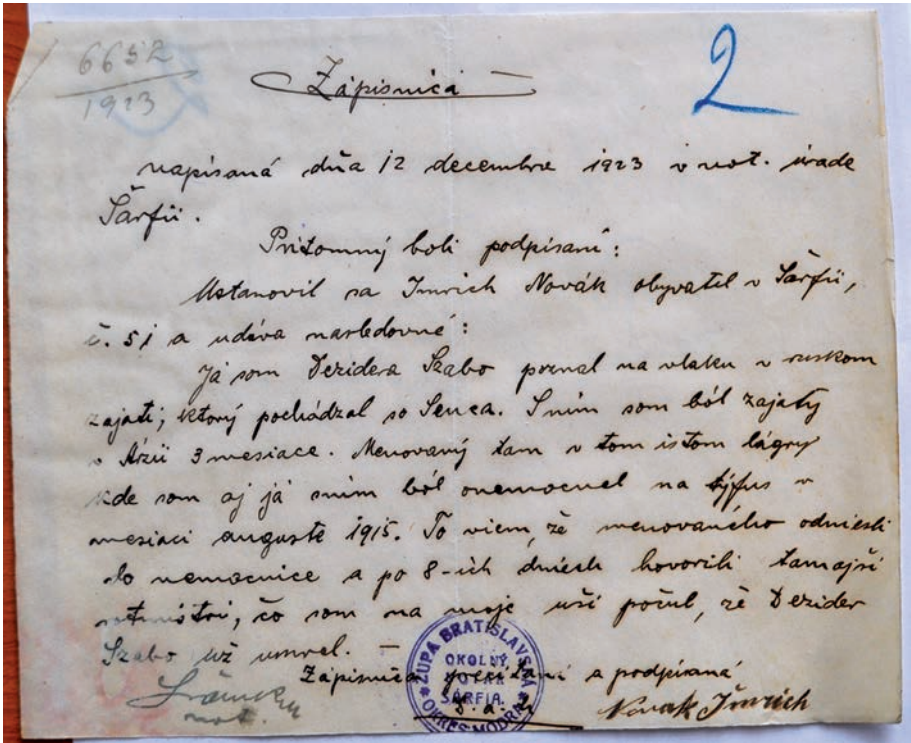 6652
1923
2
Zápisnica
napísaná dňa 12 decembra 1923 v not. úrade
Šarfii.
Prítomný boli podpísaní:
Ustanovil sa Imrich Novák obyvatel v Šarfii,
č. 51 a udáva nasledovné:
Já som Dezidera Szabo poznal na vlaku v ruskom
zajatí; ktorý pochádzal so Senca. S ním som ból zajatý
v Ázii 3 mesiace. Menovaný tam v tom istom lágry
kde som aj já sním ból onemocnel na týfus v
mesiaci auguste 1915. To viem, že menovaného odniesli
do nemocnice a po 8-ich dňiech hovorili tamajší
čo som na moje uši počul, že Dezider
Szabo už umrel. —
Zápisnica a podpísaná
not.
Novak Imrich
ŽUPA BRATISLAVSKÁ
OKOLNÝ
NOTÁR
ŠARFIA
OKRES MODRA